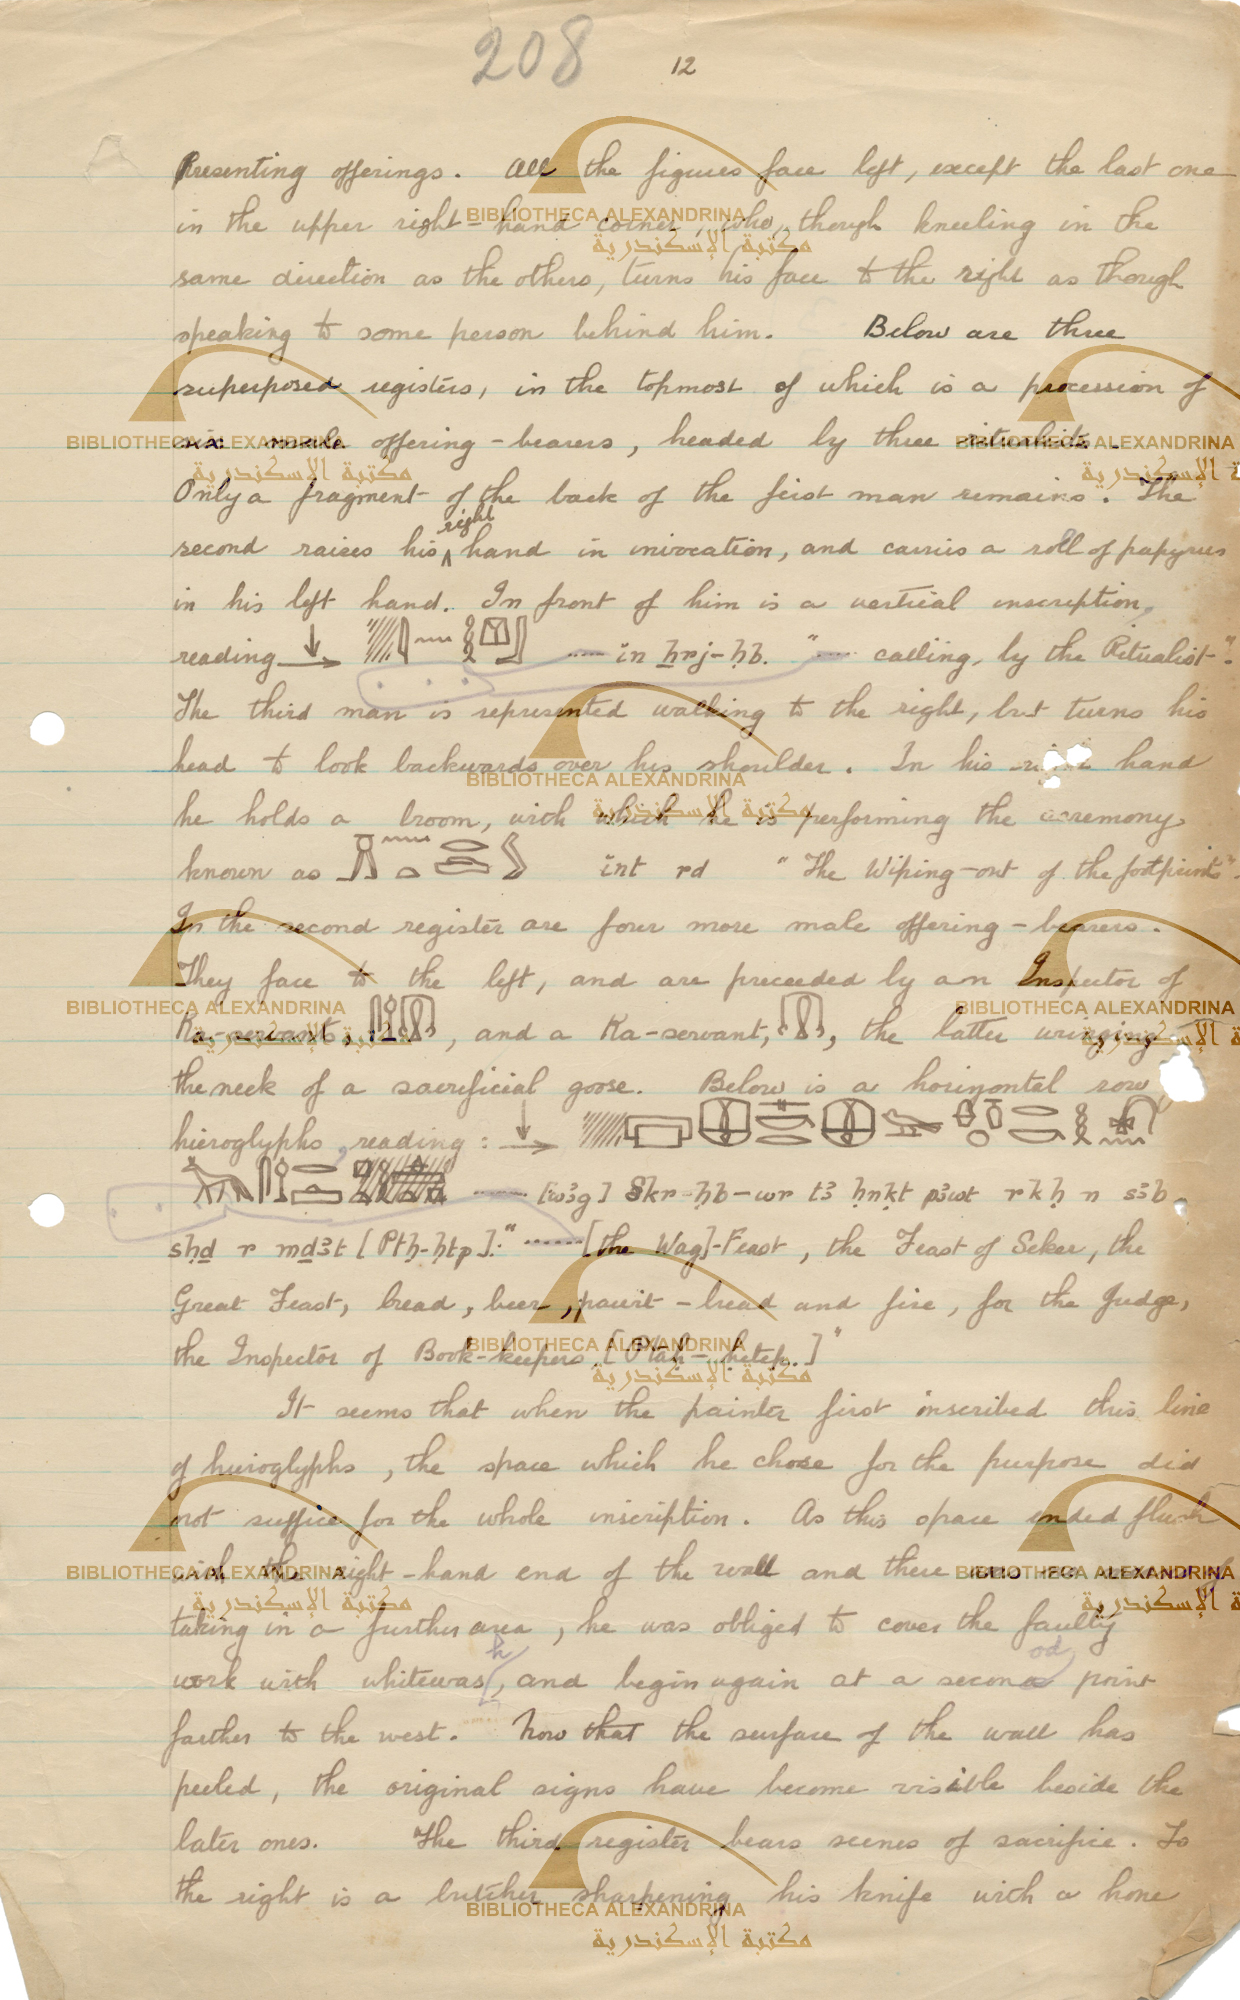 208
12
Presenting offerings. All the figures face left, except the last one
in the upper right-hand corner, who, though kneeling in the
same direction as the others, turns his face to the right as though
speaking to some person behind him. Below are three
superposed registers, in the topmost of which is a procession of
six male offering-bearers, headed by three ritualists.
Only a fragment of the back of the first man remains. The
right
second raises his hand in invocation, and carries a roll of papyrus
in his left hand. In front of him is a vertical inscription,
reading ...... in ẖrj-ḥb. "...... calling, by the Ritualist".
The third man is represented walking to the right, but turns his
head to look backwards over his shoulder. In his right hand
he holds a broom, with which he is performing the ceremony
known as int rd "The Wiping-out of the footprint".
In the second register are four more male offering-bearers.
They face to the left, and are preceded by an Inspector of
Ka-servants, , and a Ka-servant, , the latter wringing
the neck of a sacrificial goose. Below is a horizontal row
hieroglyphs, reading :
...... [wꜣg] Skr-ḥb-wr tꜣ ḥnkt pꜣwt rkḥ n sꜣb
sḥḏ r mḏꜣt [Ptḥ-ḥtp]." "......[the Wag]-Feast, the Feast of Seker, the
Great Feast, bread, beer, pawt-bread and fire, for the Judge,
the Inspector of Book-keepers, [Ptah-hetep.]"
It seems that when the painter first inscribed this line
of hieroglyphs, the space which he chose for the purpose did
not suffice for the whole inscription. As this space ended flush
with the right-hand end of the wall and there was no
taking in a further area, he was obliged to cover the faulty
h od
work with whitewash, and begin again at a second point
farther to the west. Now that the surface of the wall has
peeled, the original signs have become visible beside the
later ones. The third register bears scenes of sacrifice. To
the right is a butcher sharpening his knife with a hone
BIBLIOTHECA ALEXANDRINA
مكتبة الإسكندرية